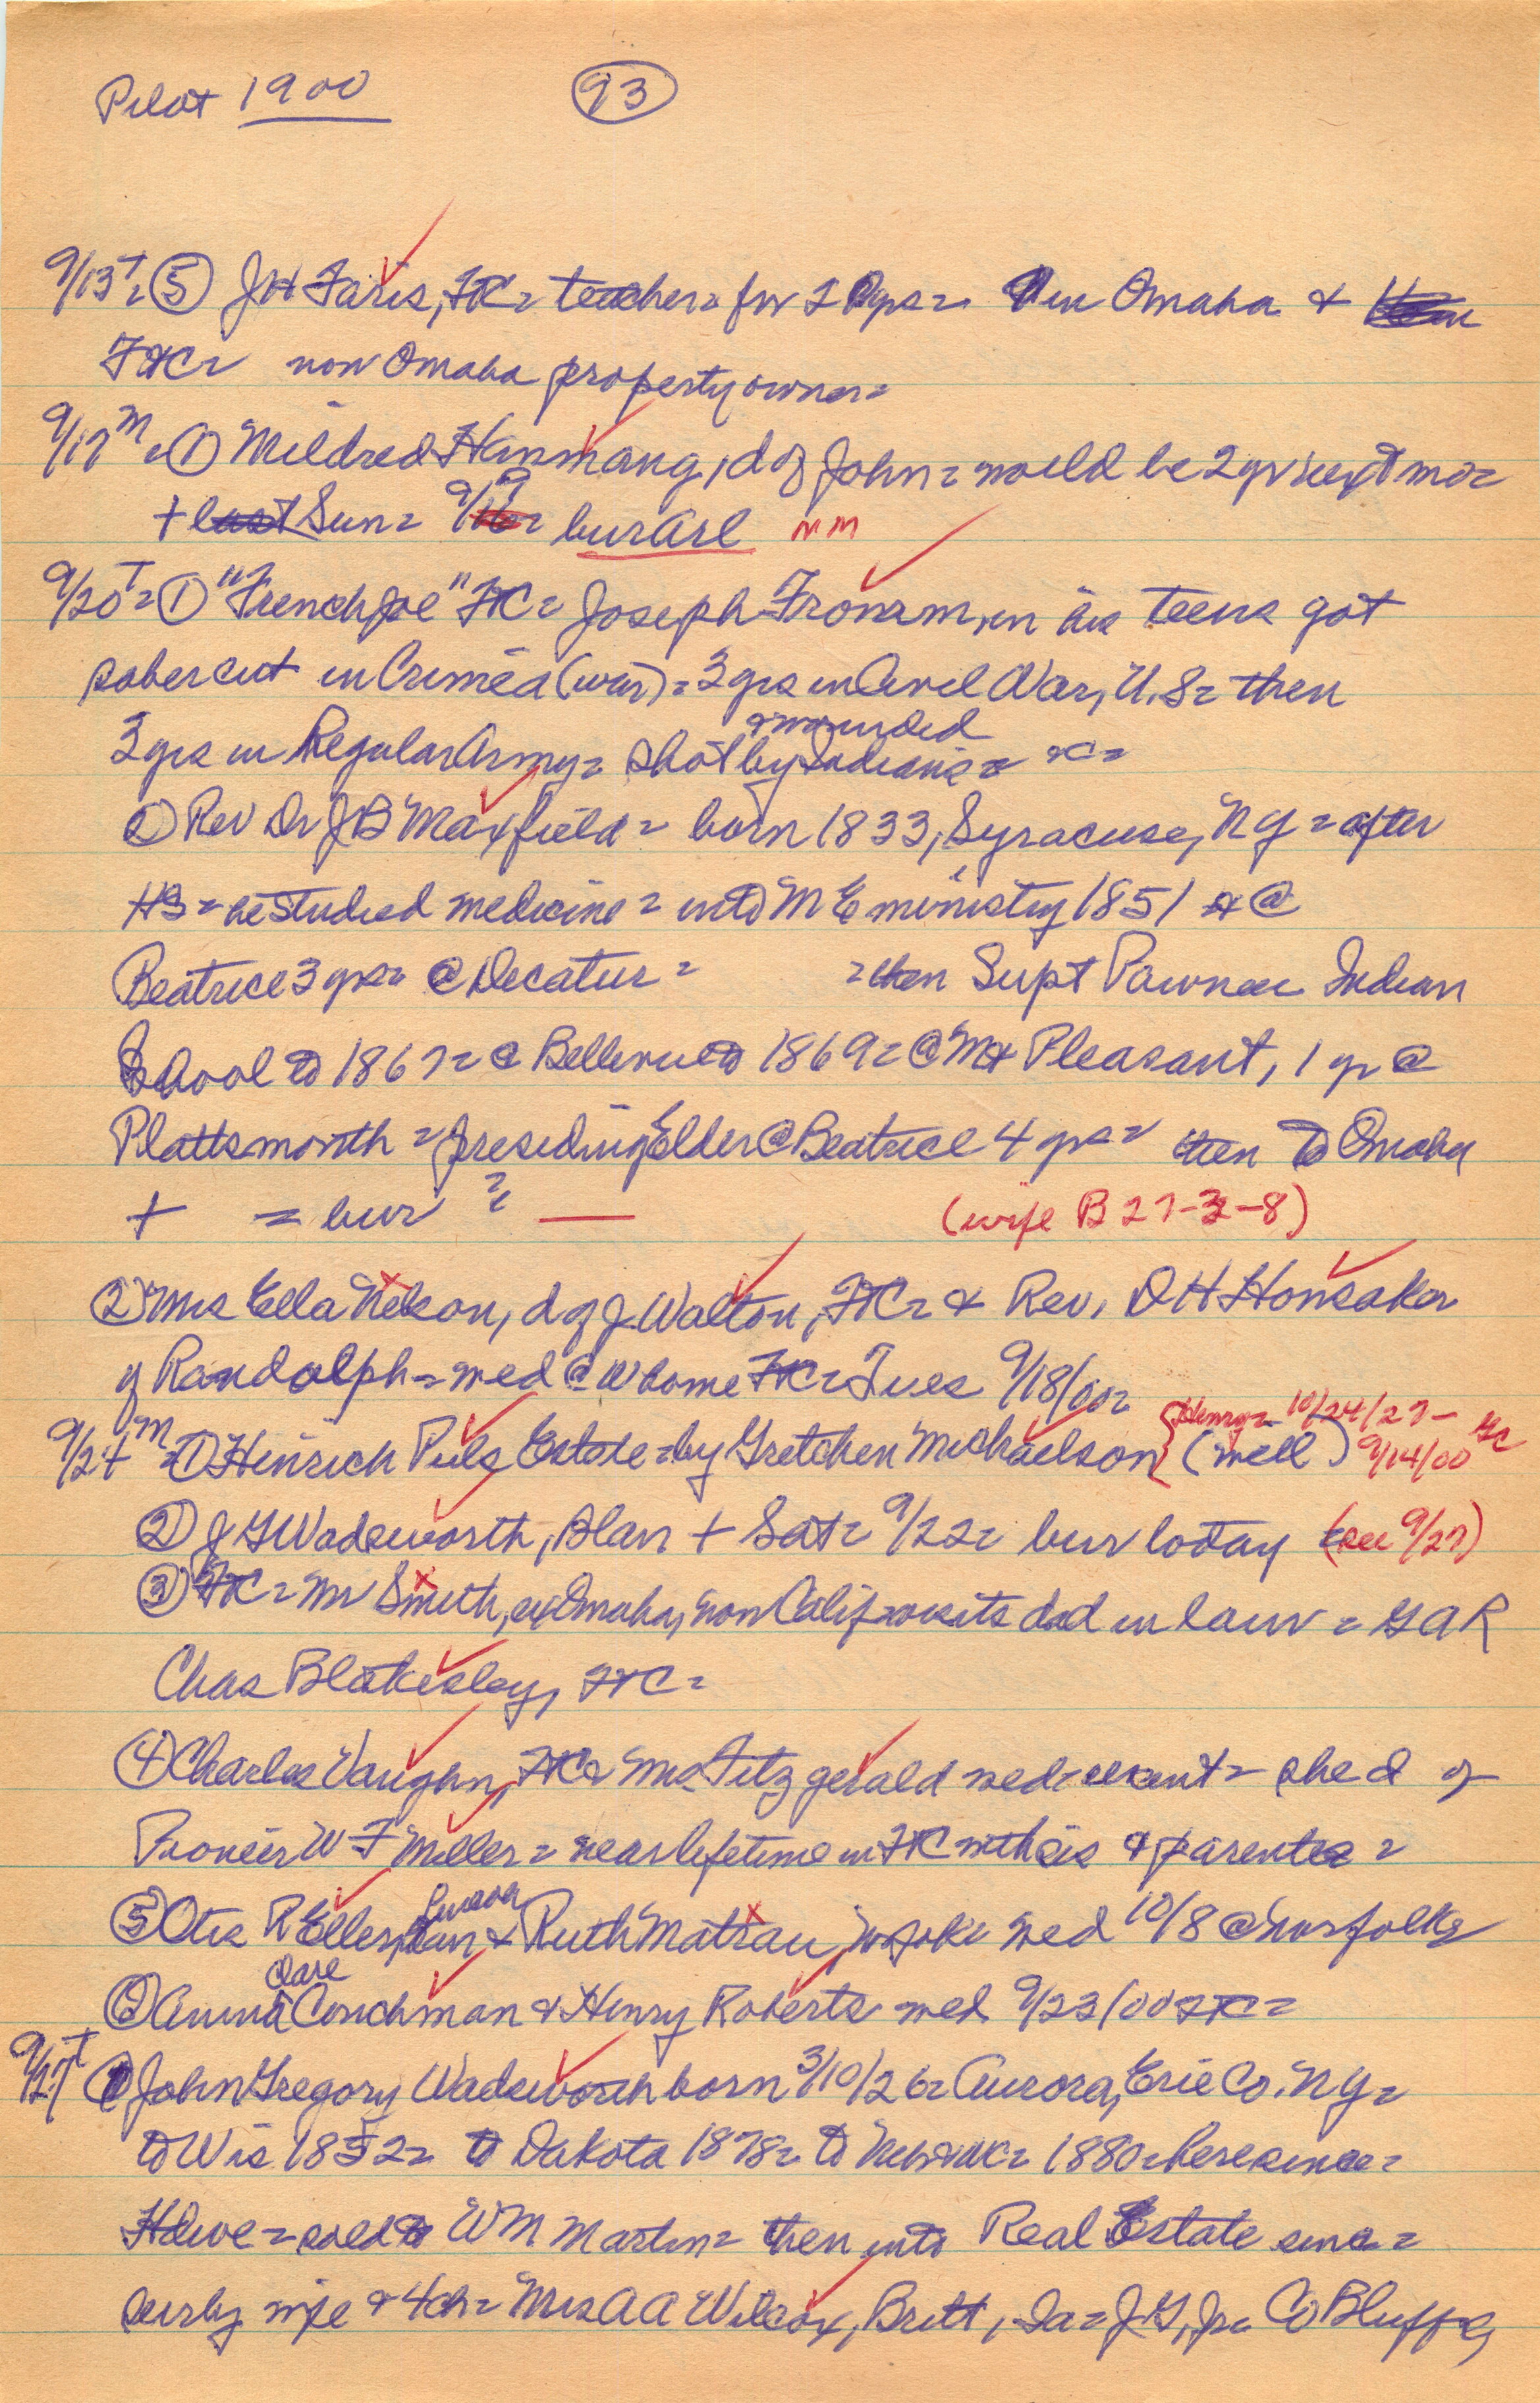 Pilot 1900 93
9/13 T = 5 J H Faris, FtC = teacher = for 20 yrs = in Omaha &
FtC = now Omaha property owner =
9/17 M = 1 Mildred Hansmang, d of John = would be 2 yr next mo =
+ last Sun = 9/9 = bur Arl MM
9/20 T = 1 "French Joe" FtC = Joseph, in his teens got
saber cut in Crimea (war) = 3 yrs in Civil War, U.S = then
& wounded
3 yrs in Regular Army = shot by Indians =
2 Rev Dr J B Maxfield = born 1833, Syracuse, NY = after
HS = he studied medicine = into M E ministry 1851 @
Beatrice 3 yrs = @ Decatur = = then Supt Pawnee Indian
School to 1867 = @ Bellevue to 1869 = @ Mt Pleasant, 1 yr @
Plattsmouth = presiding Elder @ Beatrice 4 yrs = then to Omaha
+ = bur ? (wife B 27-3-8)
2 Mrs Ella Nelson, d of J Walton, FtC = & Rev. D H Honsaker
of Randolph = wed @ W home FtC = Tues 9/18/00 =
Henry = 10/24/27 -
9/24 M = 1 Heinrich Puls Estate = by Gretchen Michaelson (will) 9/14/00
2 J G Wadsworth, Blair + Sat = 9/22 = bur today (see 9/27)
3 FtC = Mr Smith, ex Omaha, now Calif = visits dad in law = GAR
Chas Blakesley, FtC =
4 Charles Vaughn, FtC & Mrs Fitzgerald wed = recent = she d of
Pioneer W F Miller = near lifetime in FtC with sis & parents =
5 Otis R Eller, Blair & Ruth Matrau, Norfolk wed 10/8 @ Norfolk =
Dare
6 Anna Conchman & Henry Roberts wed 9/23/00 FtC =
9/27 T 1 John Gregory Wadsworth born 3/10/26 = Aurora, Erie Co. NY =
to Wis 1852 = to Dakota 1878 = to Neb & WC = 1880 = here since =
Hdwe = sold to W M Martin = then into Real Estate since =
surby wife & 4 ch = Mrs A A Wilcox, Britt, Ia = J G, Jr = Co Bluffs,